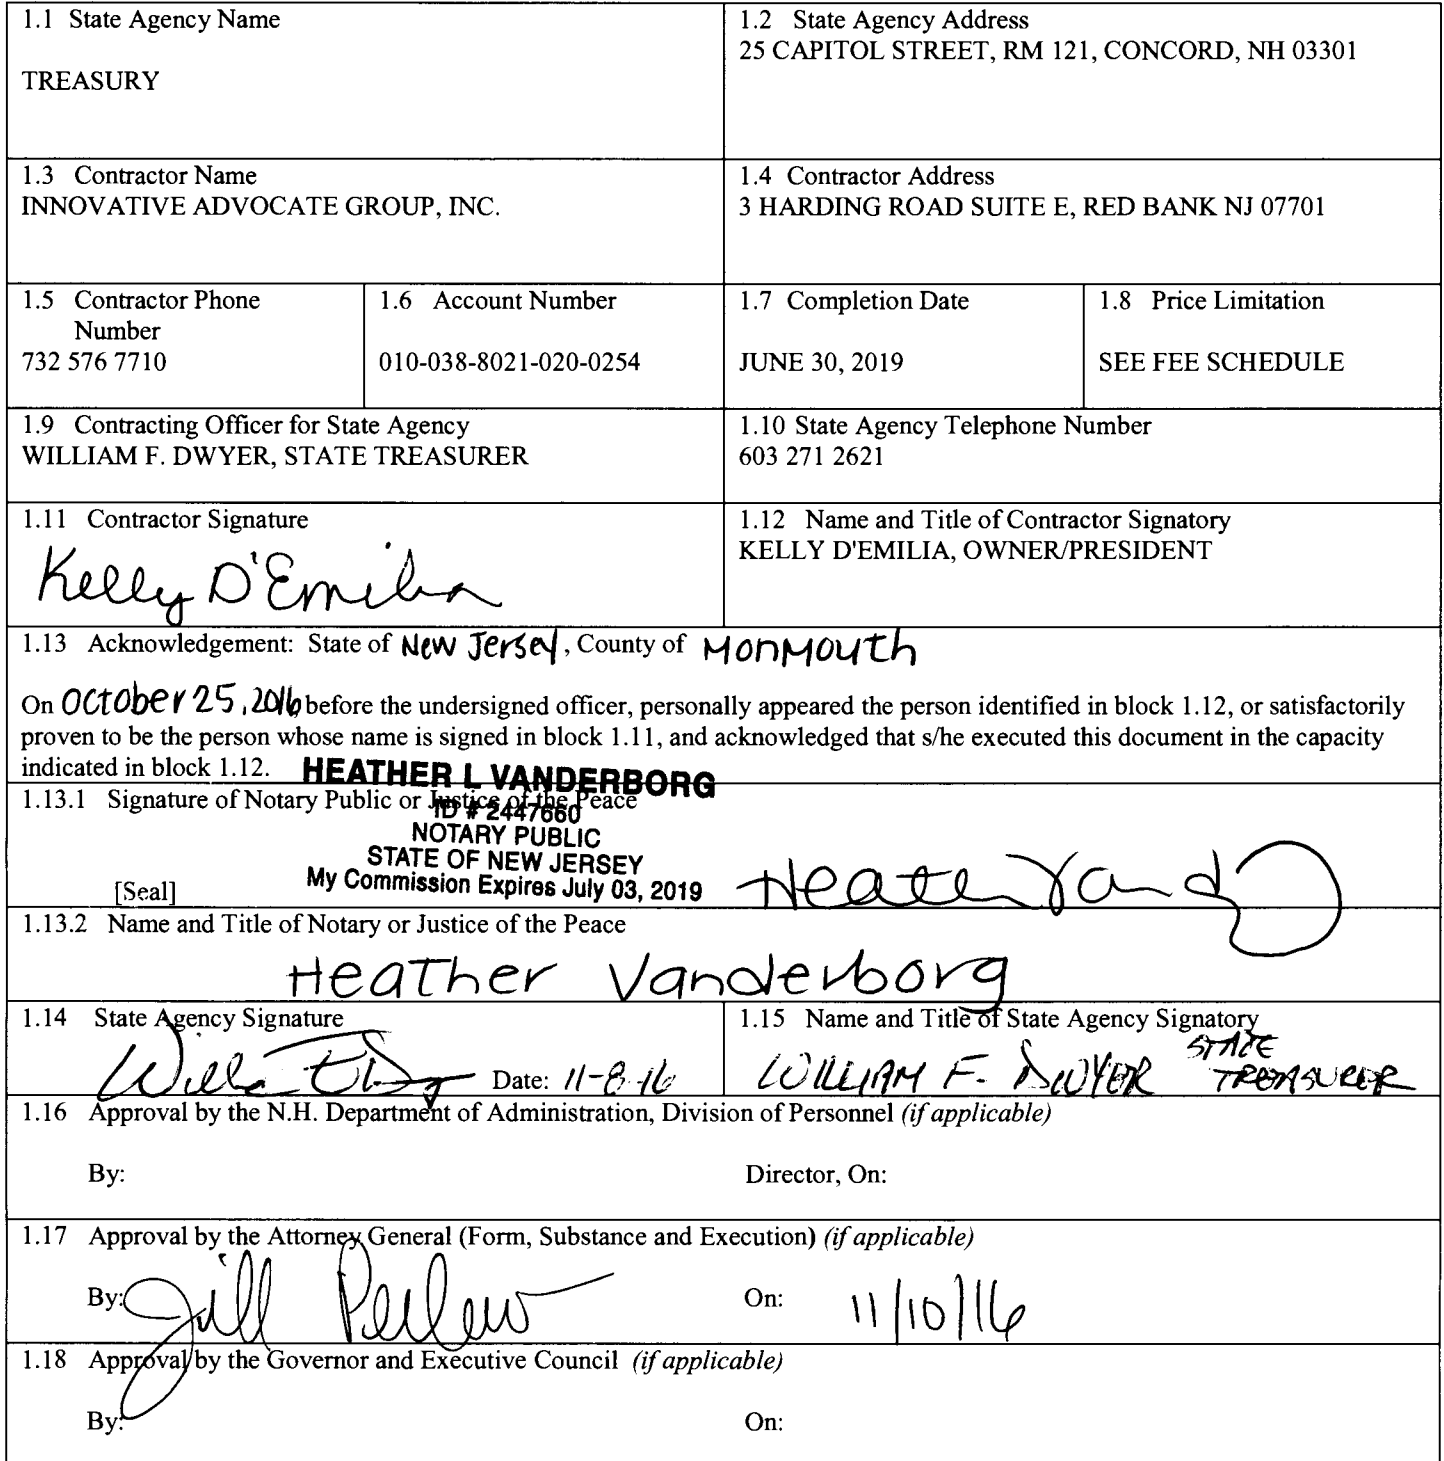 1.1 State Agency Name
TREASURY
1.2 State Agency Address
25 CAPITOL STREET, RM 121, CONCORD, NH 03301
1.3 Contractor Name
INNOVATIVE ADVOCATE GROUP, INC.
1.4 Contractor Address
3 HARDING ROAD SUITE E, RED BANK NJ 07701
1.5 Contractor Phone
Number
732 576 7710
1.6 Account Number
010-038-8021-020-0254
1.7 Completion Date
JUNE 30, 2019
1.8 Price Limitation
SEE FEE SCHEDULE
1.9 Contracting Officer for State Agency
WILLIAM F. DWYER, STATE TREASURER
1.10 State Agency Telephone Number
603 271 2621
1.11 Contractor Signature
Kelly D'Emilia
1.12 Name and Title of Contractor Signatory
KELLY D'EMILIA, OWNER/PRESIDENT
1.13 Acknowledgement: State of New Jersey, County of Monmouth
On October 25, 2016, before the undersigned officer, personally appeared the person identified in block 1.12, or satisfactorily
proven to be the person whose name is signed in block 1.11, and acknowledged that s/he executed this document in the capacity
indicated in block 1.12.
HEATHER L VANDERBORG
1.13.1 Signature of Notary Public or Justice of the Peace
ID # 2447660
NOTARY PUBLIC
STATE OF NEW JERSEY
My Commission Expires July 03, 2019
[Seal]
Heather Vand
1.13.2 Name and Title of Notary or Justice of the Peace
Heather Vanderborg
1.14 State Agency Signature
Date: 11-8-16
1.15 Name and Title of State Agency Signatory
WILLIAM F. DWYER STATE TREASURER
1.16 Approval by the N.H. Department of Administration, Division of Personnel (if applicable)
By:
Director, On:
1.17 Approval by the Attorney General (Form, Substance and Execution) (if applicable)
By: Jill Perlow
On: 11/10/16
1.18 Approval by the Governor and Executive Council (if applicable)
By:
On: